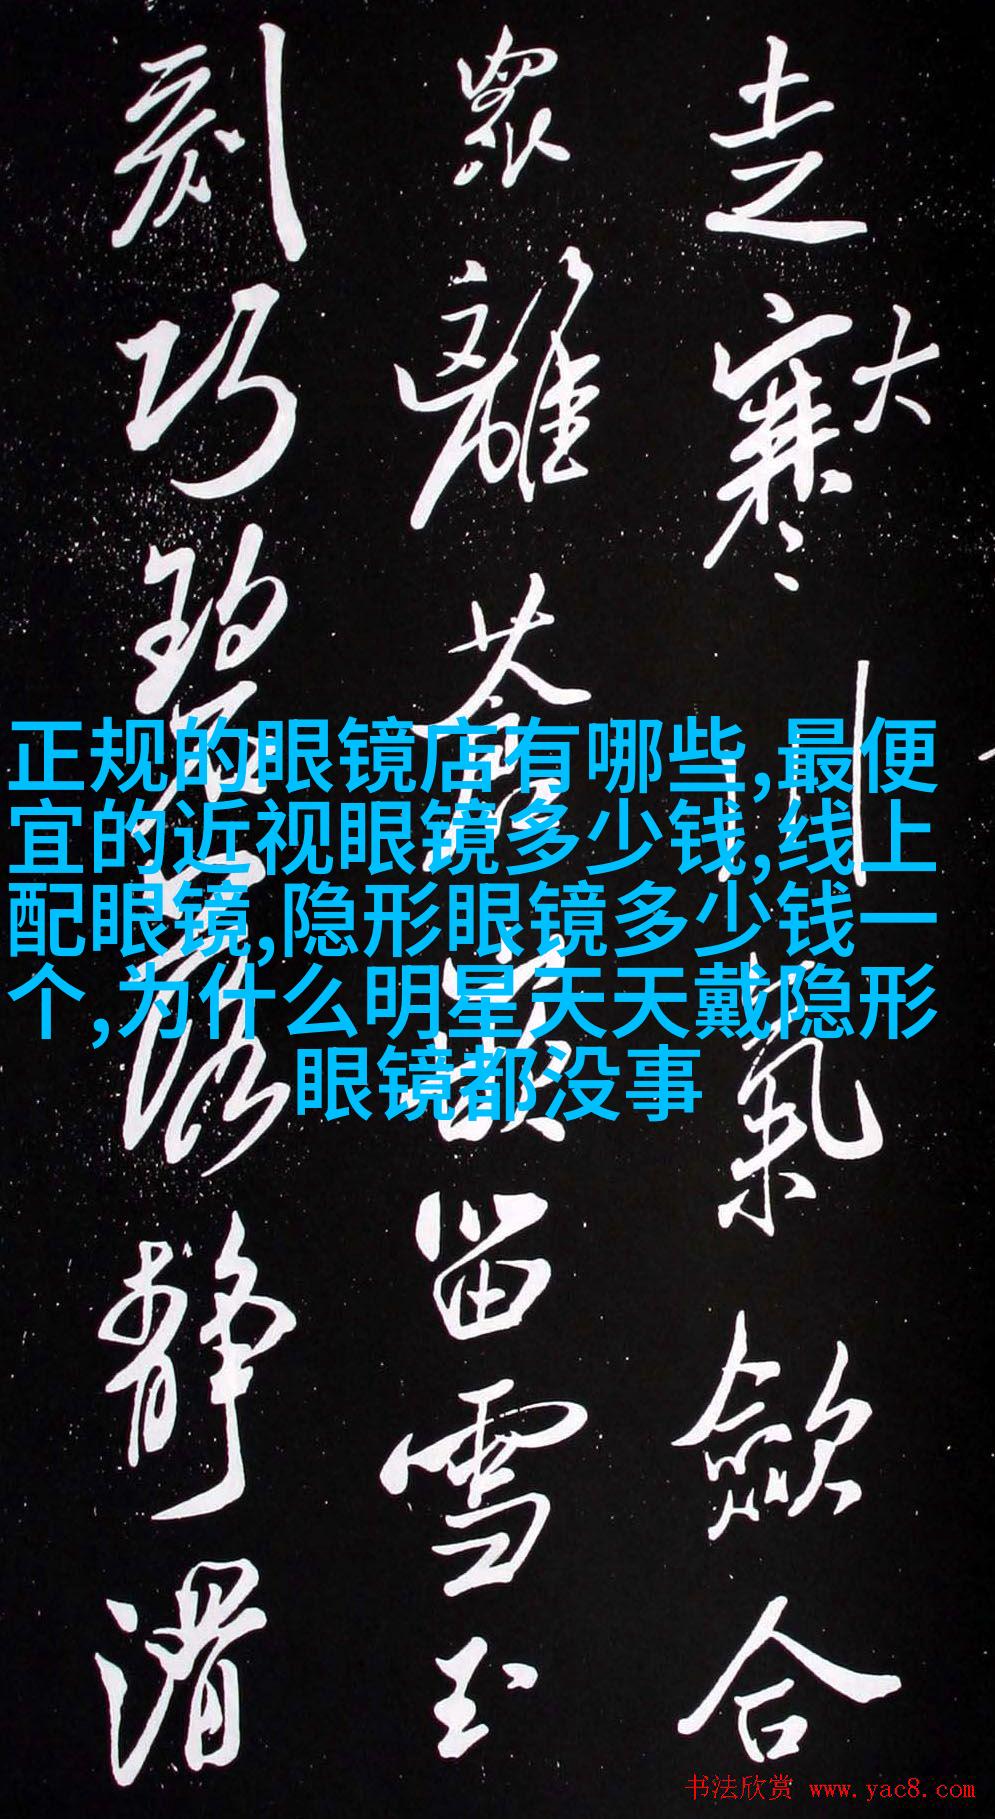 正规的眼镜店有哪些,最便
宜的近视眼镜多少钱,线上
配眼镜,隐形眼镜多少钱一
个,为什么明星天天戴隐形
眼镜都没事
走寒大川氣歛合
眾離蒼嵌留雪玉
刻巧碧落靜滑
书法欣赏 www.yac8.com